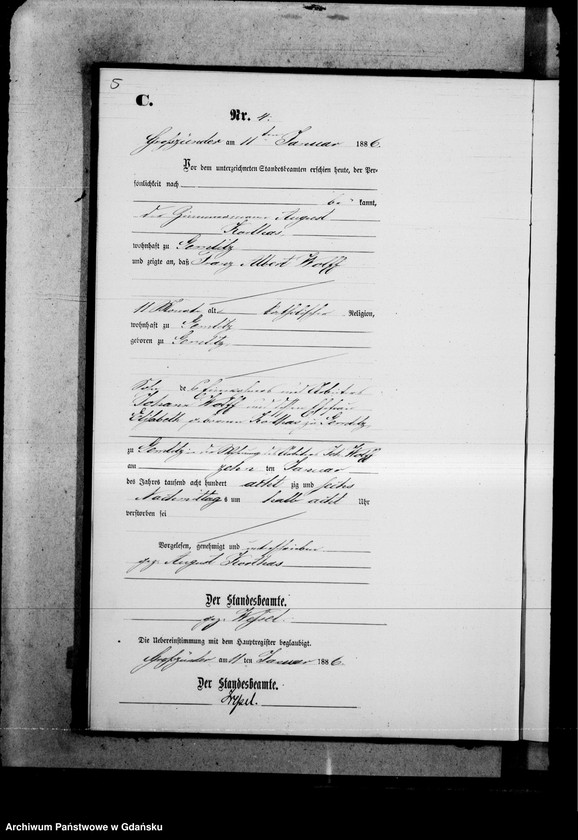 5
C.
Nr. 4.
am 11ten Januar 1886.
Vor dem unterzeichneten Standesbeamten erschien heute, der Per-
sönlichkeit nach
be kannt,
de Zimmermann August
Korthas
wohnhaft zu Gemlitz
und zeigte an, daß Franz Albert Wolff
11 Monate alt, katholischer Religion,
wohnhaft zu Gemlitz
geboren zu Gemlitz
Sohn de und Arbeiters
Johann Wolff und dessen Ehefrau
Elisabeth geborene Korthas zu Gemlitz
zu Gemlitz in der Wohnung des Joh. Wolff
am zehn ten Januar
des Jahres tausend acht hundert acht zig und sechs
Nachmittag s um halb acht Uhr
verstorben sei
Vorgelesen, genehmigt und unterschrieben
gez. August Korthas
Der Standesbeamte.
gez. Wessel.
Die Uebereinstimmung mit dem Hauptregister beglaubigt.
am 11 ten Januar 1886.
Der Standesbeamte.
Wessel.
Archiwum Państwowe w Gdańsku